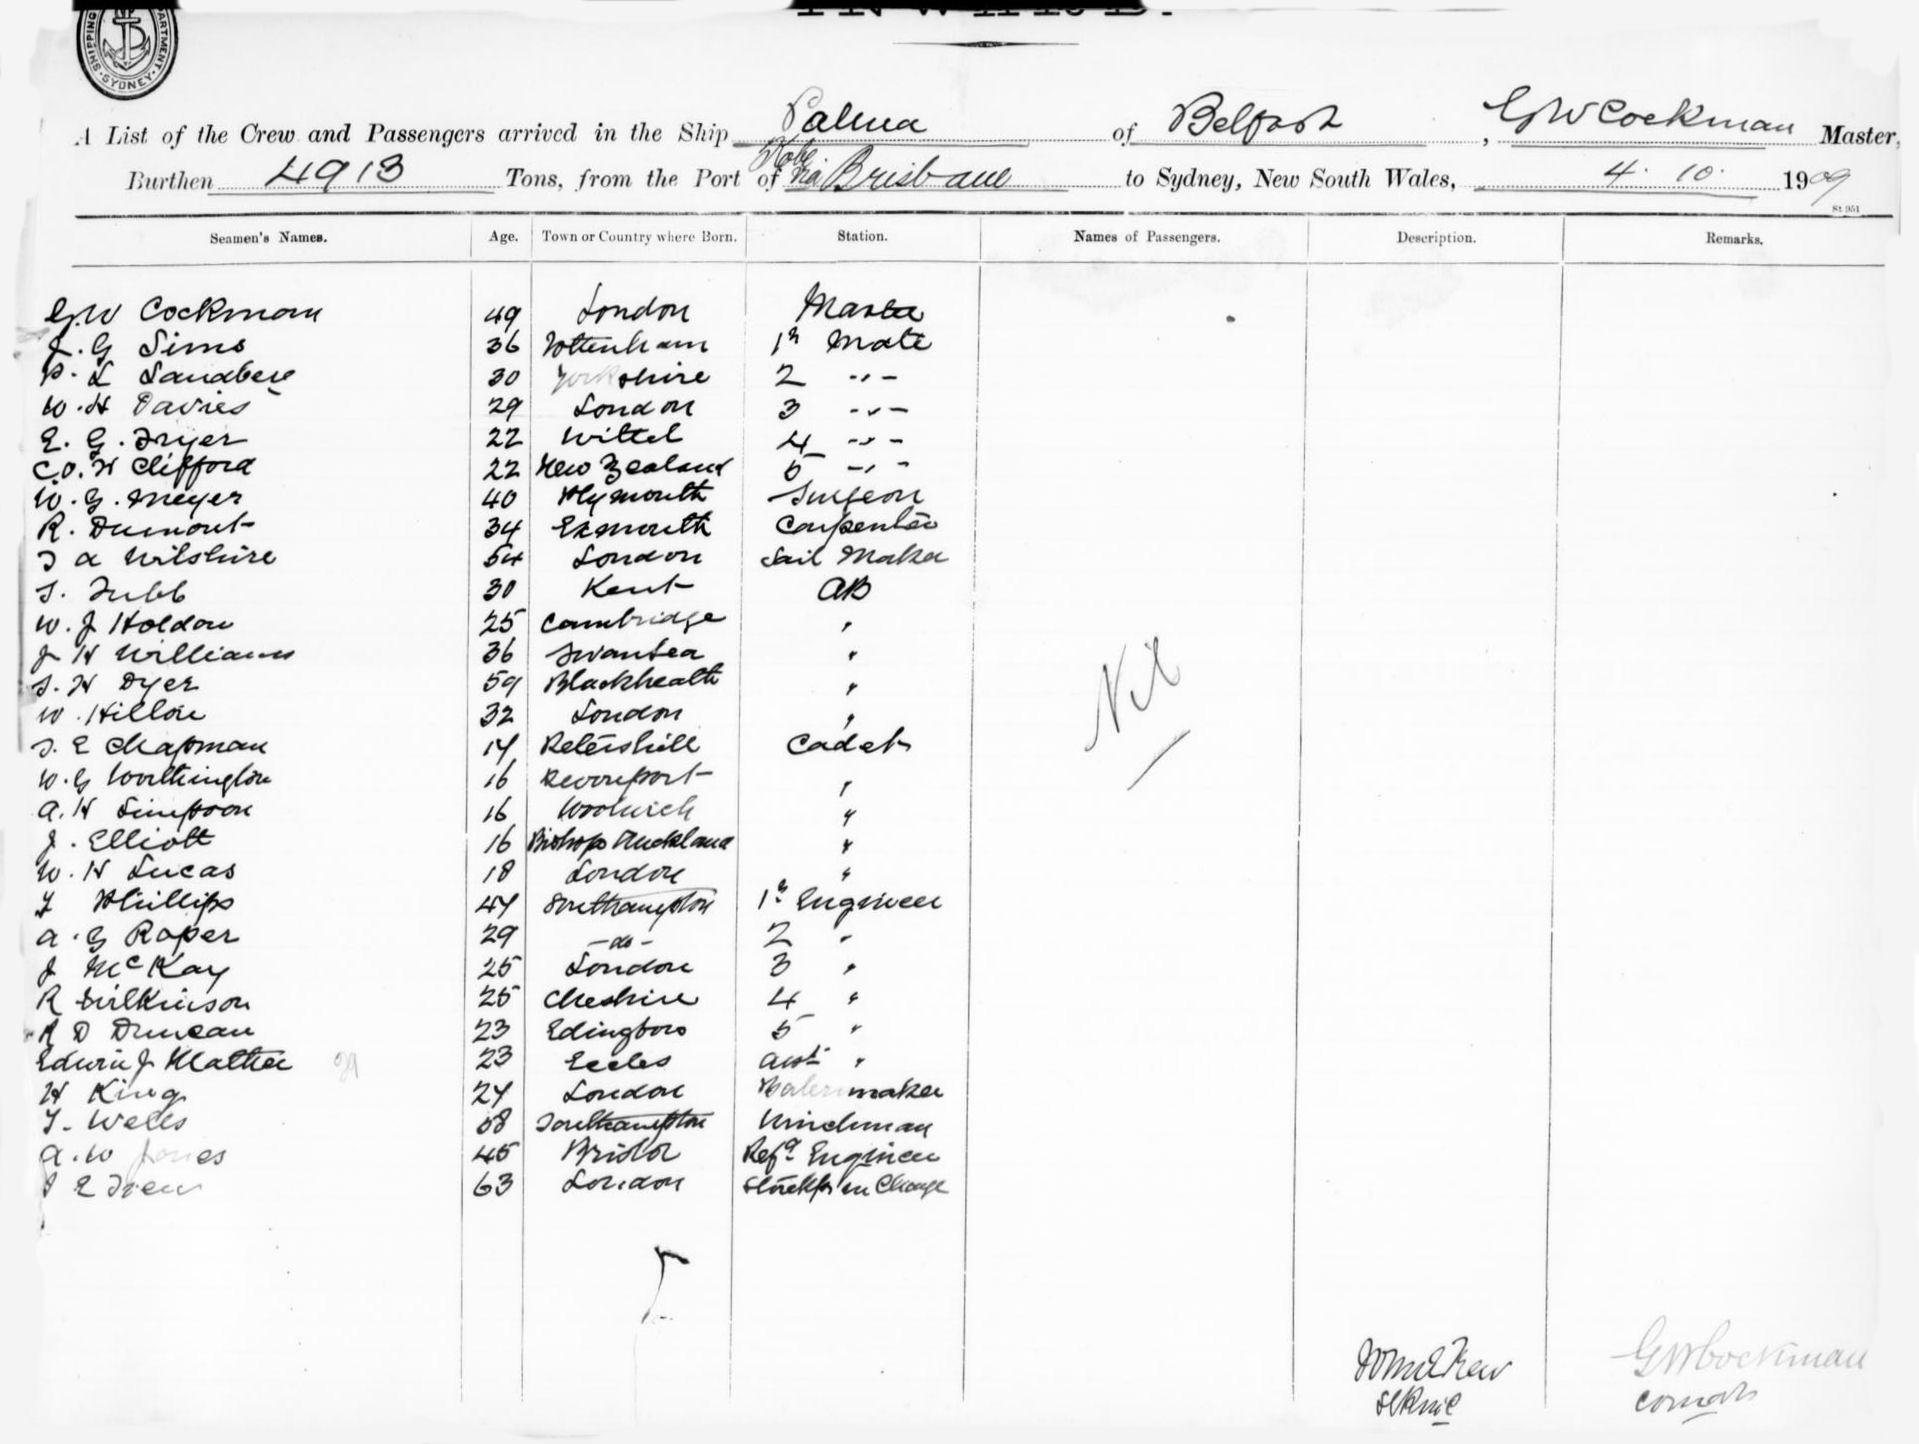 SHIPPING DEPARTMENT SYDNEY
INWARD.
A List of the Crew and Passengers arrived in the Ship Palma of Belfast, G W Cockman Master,
Burthen 4913 Tons, from the Port of Kobe via Brisbane to Sydney, New South Wales, 4. 10. 1909
St 951
Seamen's Names. Age. Town or Country where Born. Station. Names of Passengers. Description. Remarks.
G.W Cockman 49 London Master
J. G Sims 36 Tottenham 1st Mate
P. L Sandberg 30 Yorkshire 2 -"-
W. H Davies 29 London 3 -"-
E. G. Fryer 22 4 -"-
C.O. H Clifford 22 New Zealand 5 -"-
W. G. Meyer 40 Plymouth Surgeon
R. Dumont 34 Exmouth Carpenter
T A Wilshire 54 London Sail Maker
T. Tubb 30 Kent AB
W. J Holdon 25 Cambridge "
J H Williams 36 Swansea "
T. H Dyer 59 Blackheath "
W. 32 London "
T. E Chapman 17 Cadet
W. G Worthington 16 Devonport "
A. H Simpson 16 Woolwich "
J. Elliott 16 Bishop Auckland "
W. H Lucas 18 London "
Phillips 47 Southampton 1st Engineer
A. G Roper 29 -do- 2 "
J McKay 25 London 3 "
R Wilkinson 25 Cheshire 4 "
R D Duncan 23 Edingboro 5 "
Edwin J Mather 23 Eccles Asst "
H King 24 London Boilermaker
Wells 58 Southampton Winchman
A. W Jones 45 Bristol Refg Engineer
E Trew 63 London Storekpr in Charge
Nil
G W Cockman